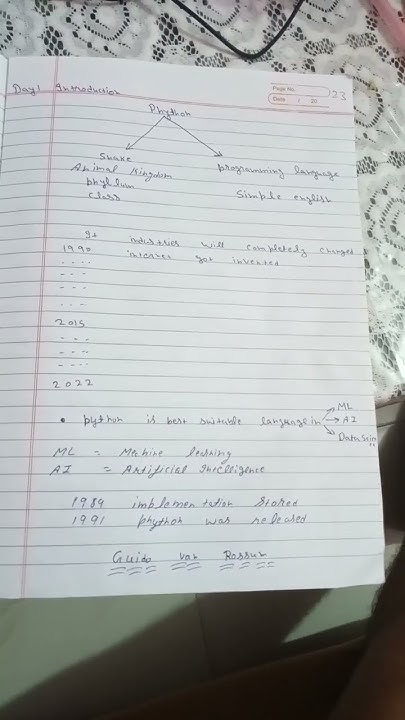 Day 1 Introduction
Page No. 23
Date : 20
Phython
Snake
Animal Kingdom programming language
phyllum
class Simple english
It industries will completely changed
1990 internet got invented
....
---
---
...
2015
---
---
....
2022
• python is best suitable language in → ML
→ AI
→ Data Scin
ML = Machine learning
AI = Artificial Intelligence
1989 implementation stared
1991 phython was released
Guido van Rossum